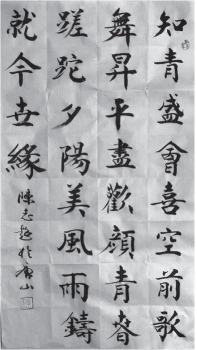 知青盛會喜空前歌
舞昇平盡歡顏青春
蹉跎夕陽美風雨鑄
就今世緣
陳志超於唐山